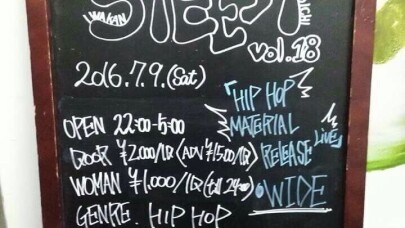 WAKAN
STEEZY
vol.18
2016.7.9.(Sat)
OPEN 22:00-5:00
DOOR ¥2,000/1D (ADV ¥1,500/1D)
WOMAN ¥1,000/1D (till 24:00)
GENRE. HIP HOP
「HIP HOP
MATERIAL
RELEASE
LIVE」
WIDE